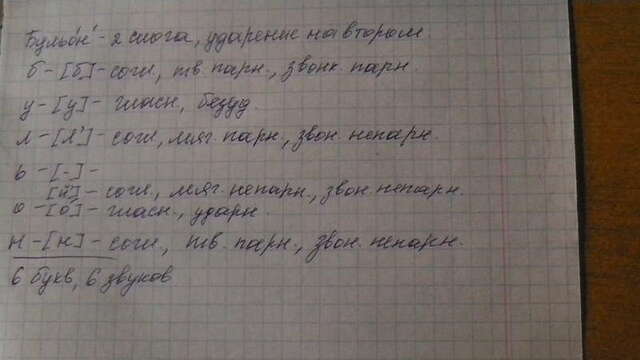 Бульо́н - 2 слога, ударение на втором
б - [б] - согл, тв. парн., звонк. парн.
у - [у] - гласн, безуд.
л - [л'] - согл, мяг. парн., звон. непарн.
ь - [-] -
[й] - согл., мяг. непарн., звон. непарн.
о - [о́] - гласн., ударн.
н - [н] - согл, тв. парн., звон. непарн.
6 букв, 6 звуков